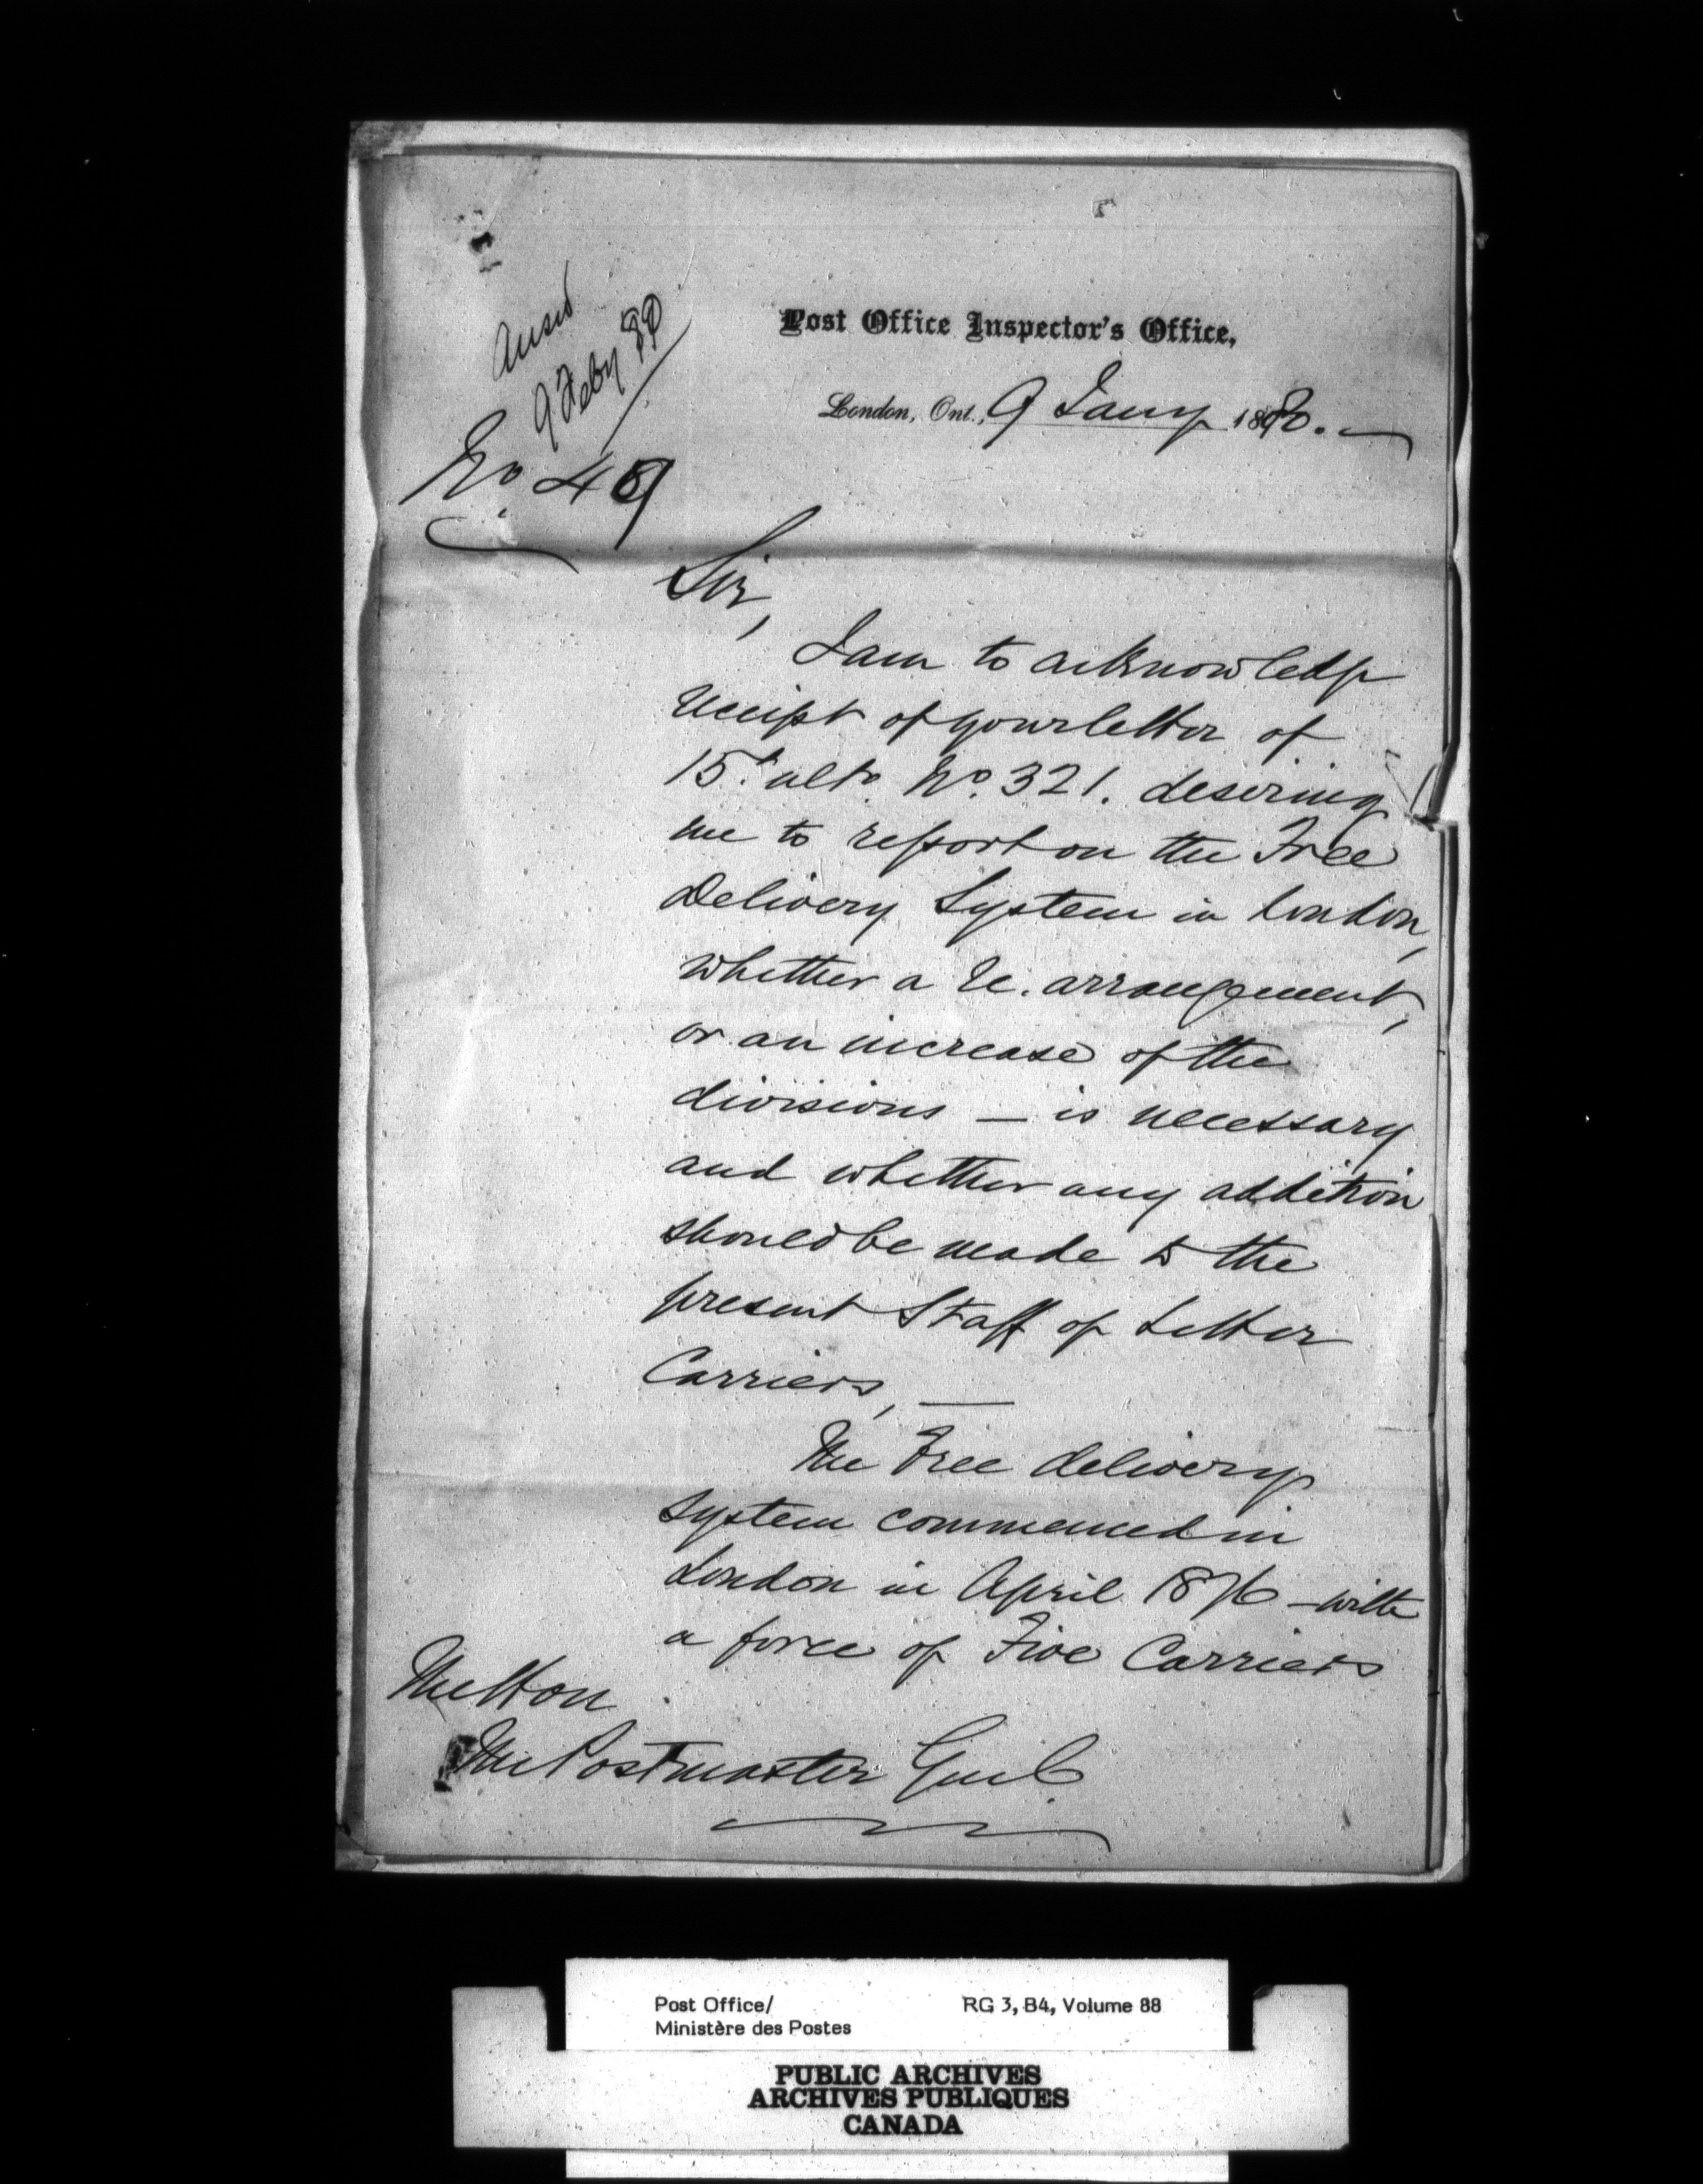 Ansd
9 Feby 80
Post Office Inspector's Office,
London, Ont., 9 Jany 1880.
No 49
Sir,
I am to acknowledge
receipt of your letter of
15t. ulto. No. 321. desiring
me to report on the Free
Delivery System in London,
whether a re.arrangement,
or an increase of the
divisions — is necessary
and whether any addition
should be made to the
present Staff of Letter
Carriers, —
The Free delivery
system commenced in
London in April 1876 – with
a force of Five Carriers
The Hon
The Postmaster Genl.
Post Office/
Ministère des Postes
RG 3, B4, Volume 88
PUBLIC ARCHIVES
ARCHIVES PUBLIQUES
CANADA